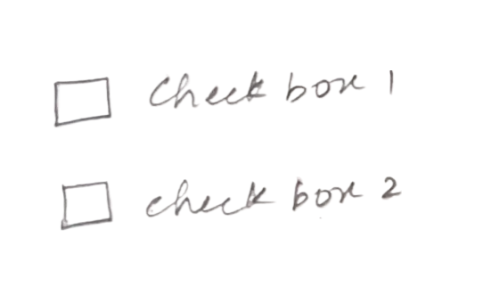 Check box 1
check box 2